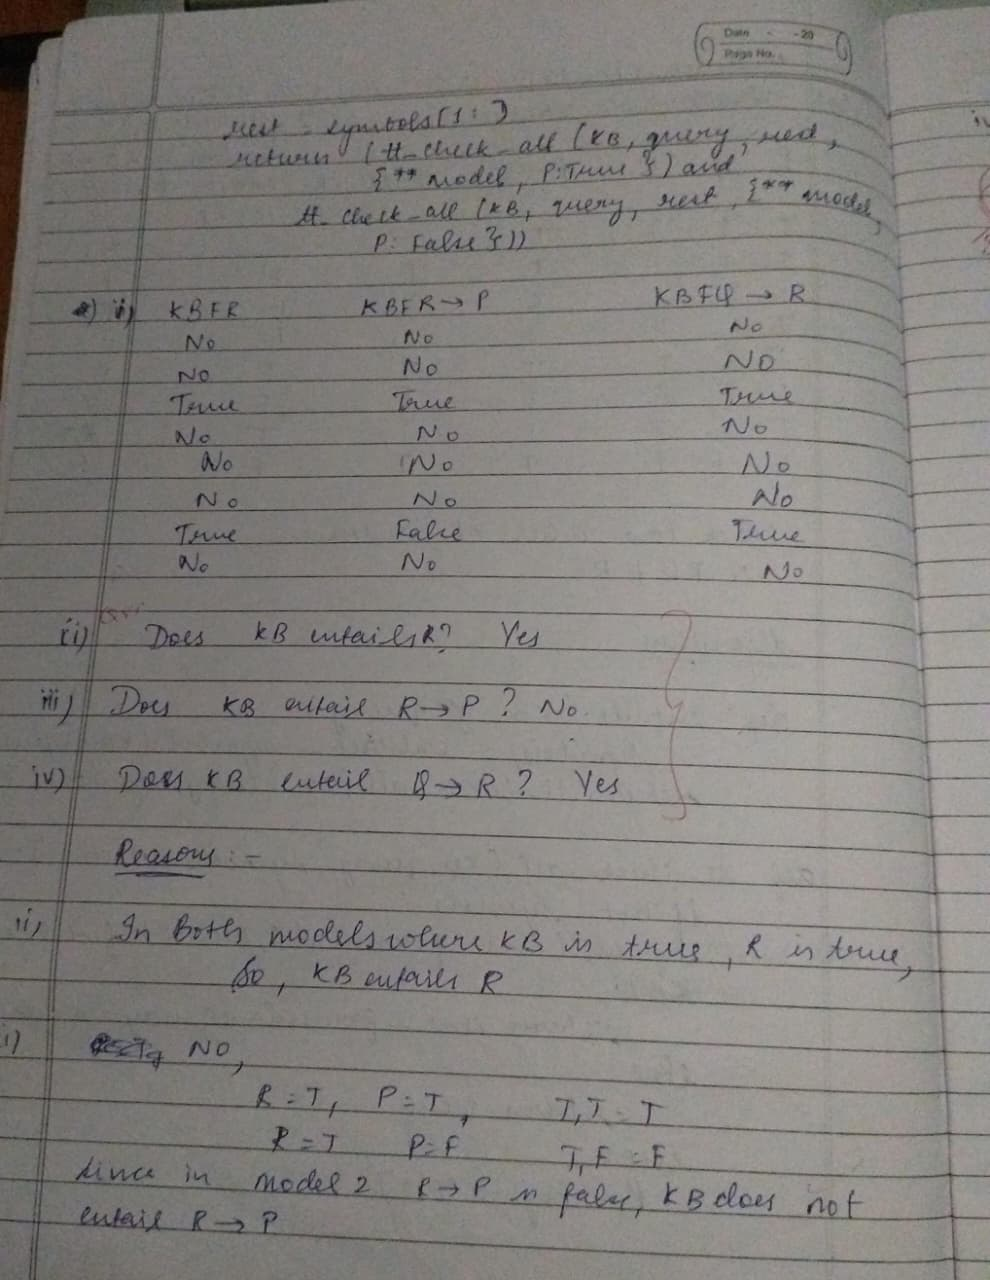 Date - -20
Page No.
rest = symbols[1:]
return (tt_check_all (KB, query, rest,
{** model, P:True }) and
tt_check_all (KB, query, rest, {** model,
P: False }))
i) KBFR KBFR→P KBFQ → R
No No No
No No NO
True True True
No No No
No No No
No No No
True False True
No No No
ii) Does KB entails R? Yes
iii) Does KB entail R→P ? No.
iv) Does KB entail Q→R ? Yes
Reasons :-
ii) In Both models where KB is true, R is true,
So, KB entails R
i) NO,
R=T, P=T, T,T = T
R=T P=F T,F = F
since in model 2 R→P is false, KB does not
entail R→P